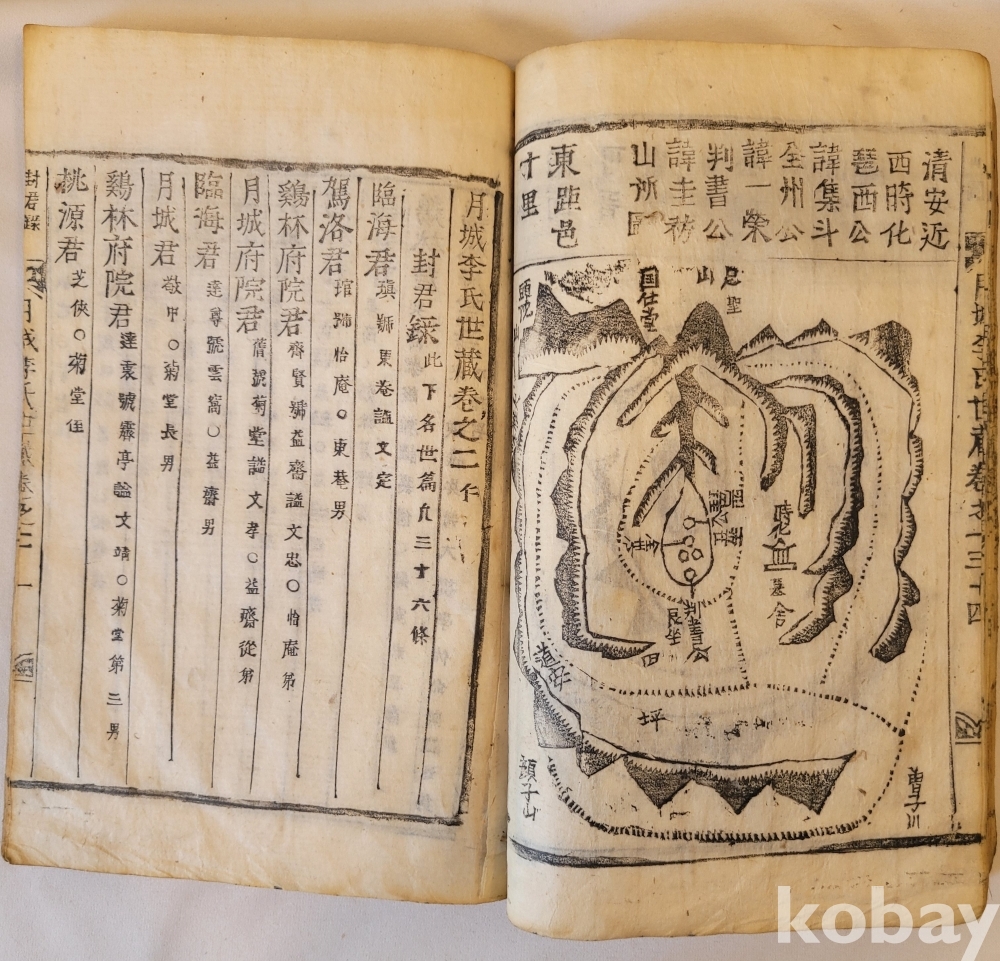 清安近
西時化
琶西公
諱集斗
全州公
諱一榮
判書公
諱圭
山所圖
東距邑
十里
尼聖
山
国仕堂
時化
墓舍
判書公
艮坐
坪
道安
顔子山
曽子川
月城李氏世蔵卷之一三十四
月城李氏世蔵卷之二 仁
封君錄 此下名世篇凢三十六條
臨海君 瑱號東菴謚文定
駕洛君 琯號怡庵○東菴男
鷄林府院君 齊賢號益齋謚文忠○怡庵弟
月城府院君 蒨號菊堂謚文孝○益齋從弟
臨海君 達尊號雲窩○益齋男
月城君 敬中○菊堂長男
鷄林府院君 達衷號霽亭謚文靖○菊堂第三男
桃源君 芝侠○菊堂侄
封君錄
月城李氏世蔵卷之二
一
kobay